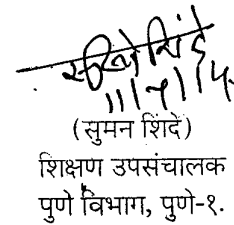 (सुमन शिंदे)
शिक्षण उपसंचालक
पुणे विभाग, पुणे-१.